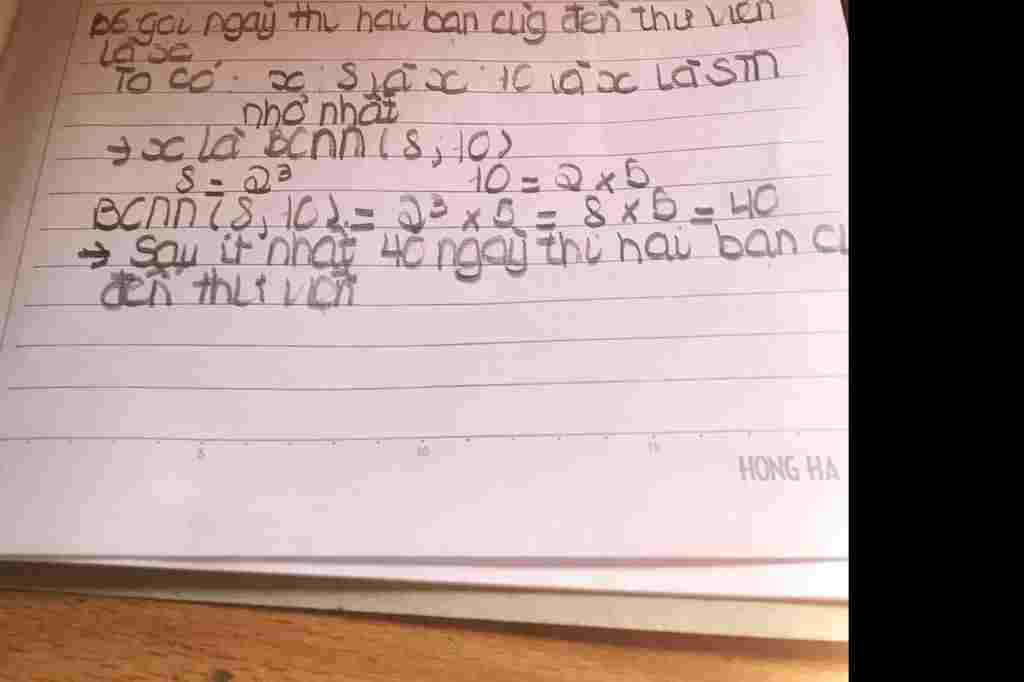 Bổ gọi ngày thi hai bạn cùg đến thư viện
là x
Ta có: x ⋮ 8 và x ⋮ 10 và x là SM
nhỏ nhất
→ x là BCNN (8, 10)
8 = 2³ 10 = 2 × 5
BCNN (8, 10) = 2³ × 5 = 8 × 5 = 40
→ Sau ít nhất 40 ngày thì hai bạn cù
đến thư viện
5 10 15
HONG HA